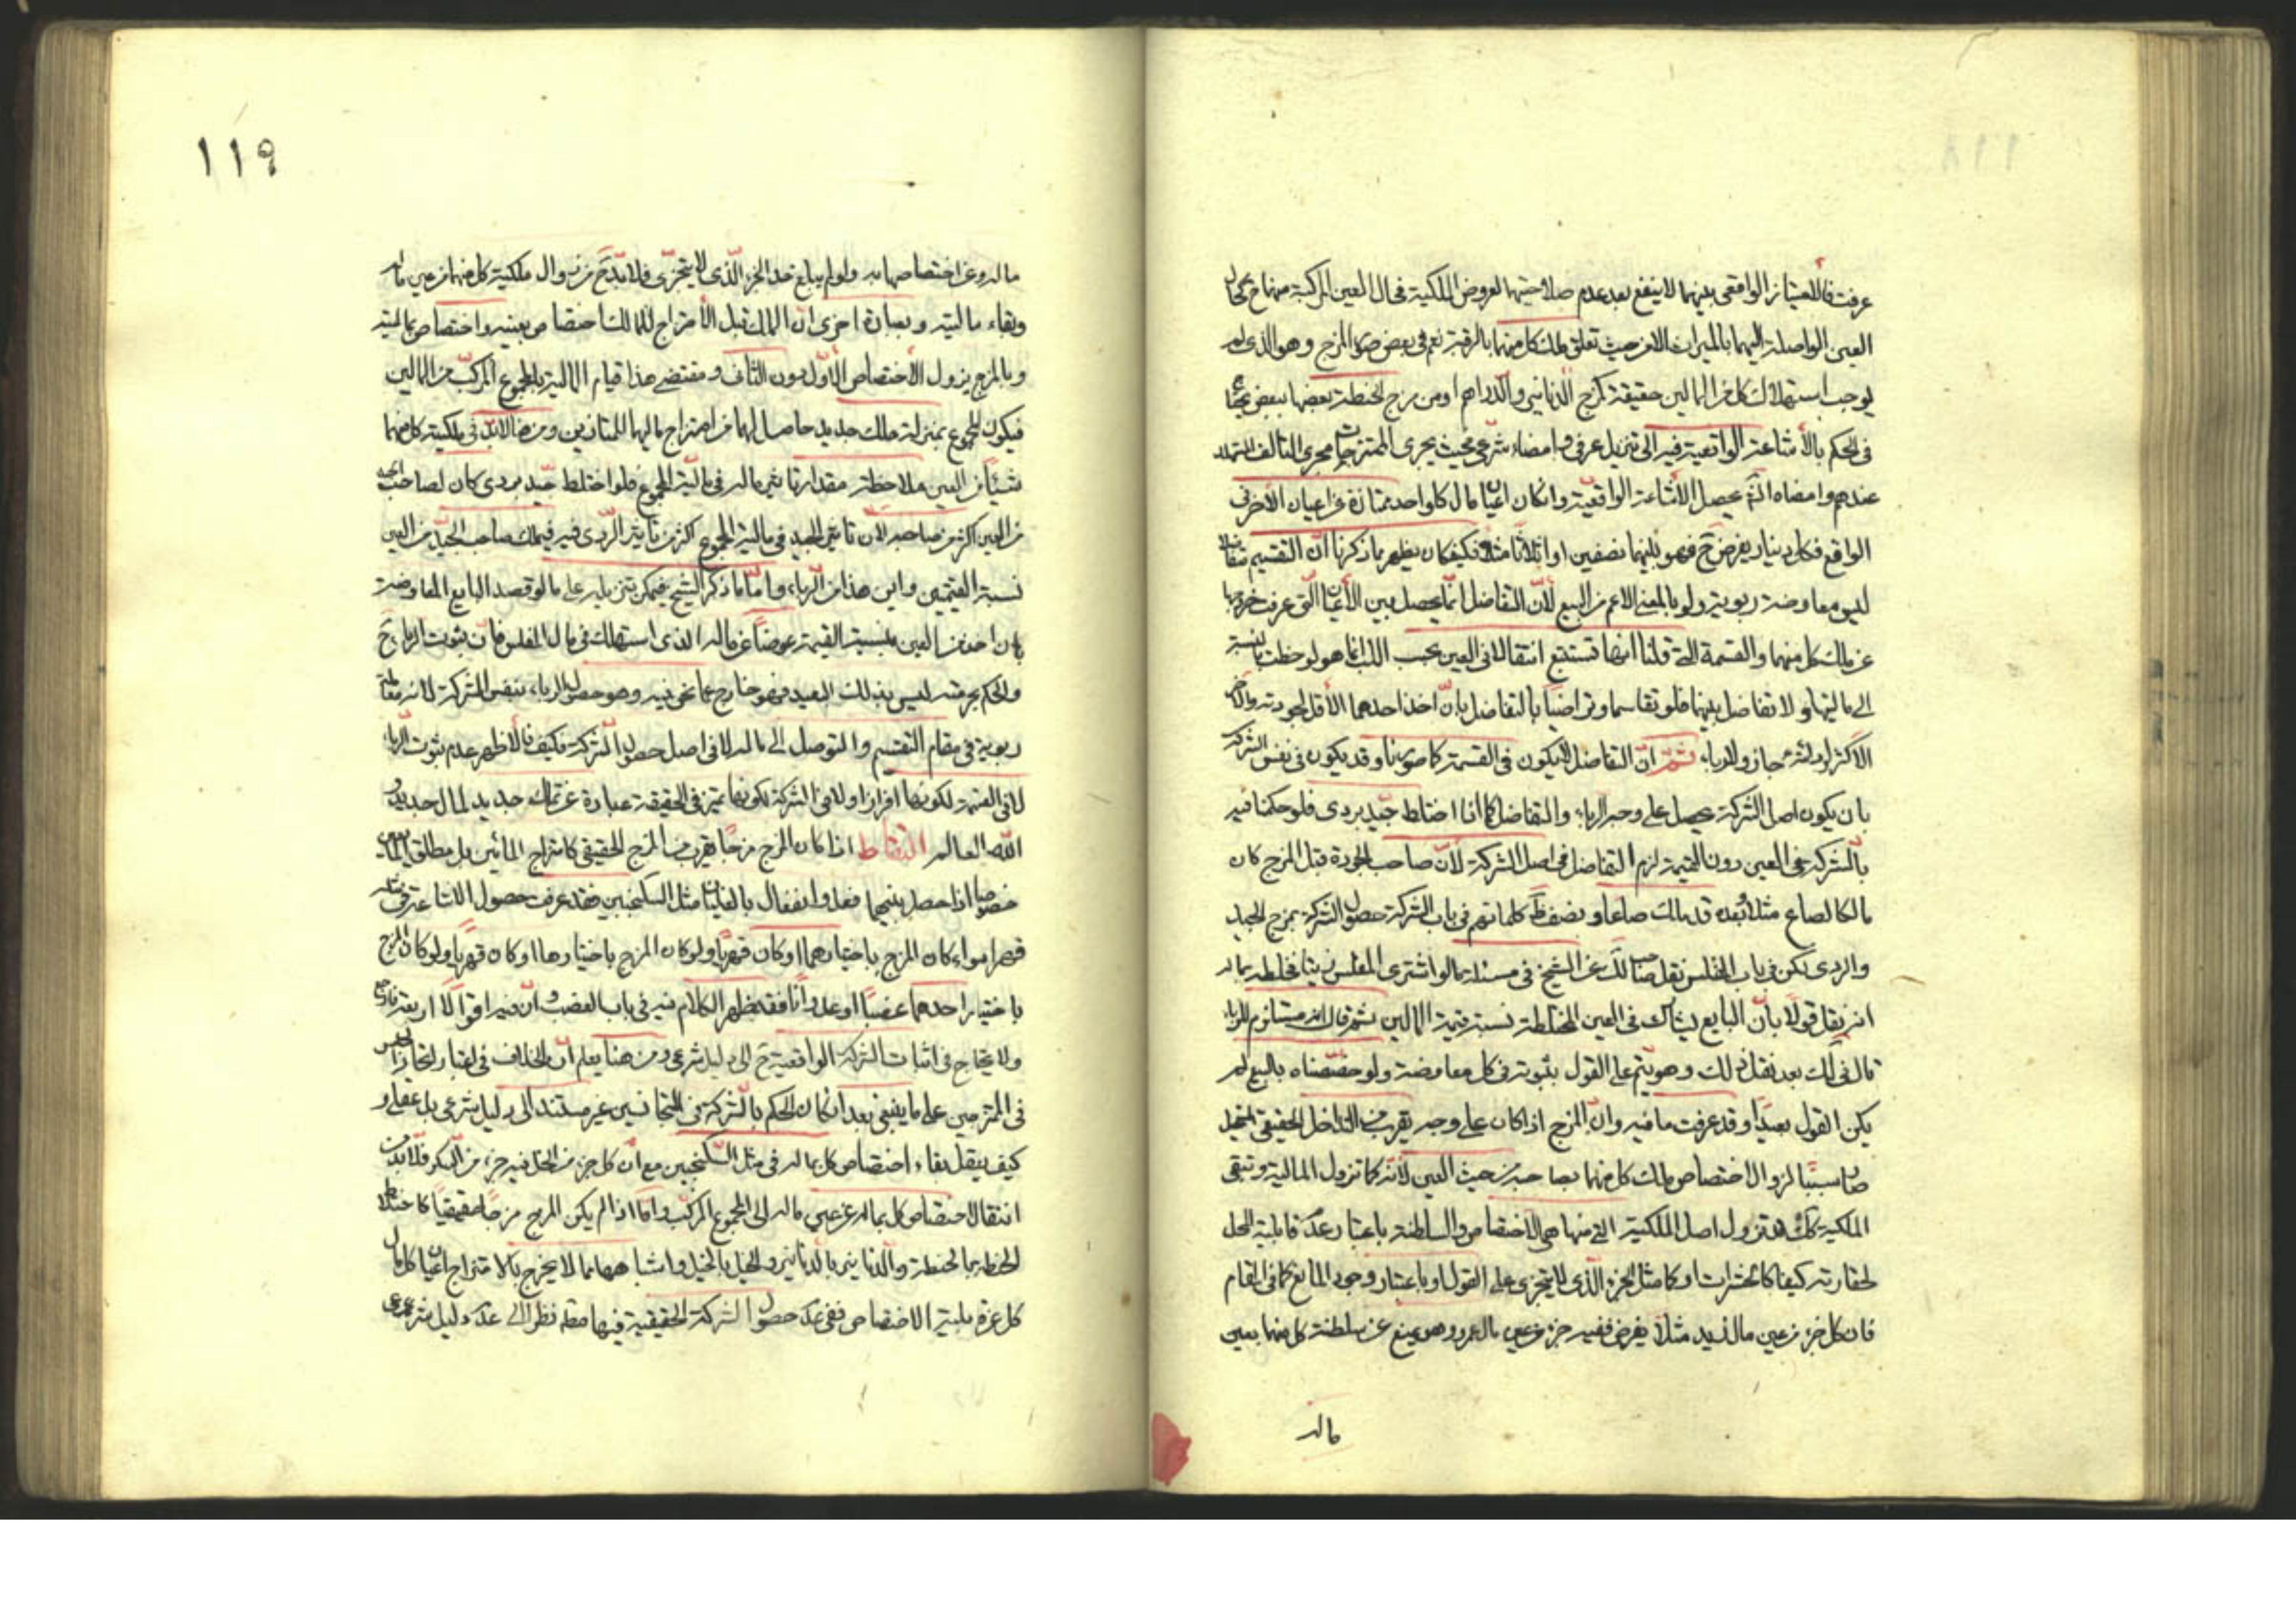 عرفت فالامتياز الواقعي بينهما لا ينفع بعد عدم صلاحيتهما لعروض الملكية في حال العين المركبة منهما ح كحال
العين الواصلة اليهما بالميراث الا من حيث تعلق ملك كل منهما بالرقبة نعم في بعض صور المزج وهو الذي لم
يوجب استهلاك كل من المالين حقيقة كمزج الدنانير والدراهم او من مزج الحنطة بعضها ببعض
في الحكم بالاشاعة الواقعية فيه الى تنزيل عرفي وامضاء شرعي بحيث يجري الممتزجات مجرى التالف
عندهم وامضاه الشرع يحصل الاشاعة الواقعية وان كان اعيان مال كل واحد ممتازة عن اعيان الاخر في
الواقع فكل دينار يفرض ح فهو بينهما نصفين او اثلاثا مثلا وكيف كان يظهر مما ذكرنا ان التقسيم متفاضلا
ليس معاوضة ربوية ولو بالمعنى الاعم من البيع لان التفاضل انما يحصل بين الاعيان التي عرفت خروجها
عن ملك كل منهما والقسمة التي قلنا انها تستتبع انتقالا في العين بحسب اللب انما هو لو حظت بالنسبة
الى ماليتها ولا تفاضل بينهما فلو تقاسما وتراضيا بالتفاضل بان اخذ احدهما الاقل لجودته والاخر
الاكثر لردائته جاز ولا ربا ثم ان التفاضل قد يكون في القسمة كما صورنا وقد يكون في نفس الشركة
بان يكون اصل الشركة يحصل على وجه الربا والتفاضل كما اذا اختلط جيد بردي فلو حكمنا فيه
بالشركة في العين دون القيمة لزم التفاضل في اصل الشركة لان صاحب الجودة قبل المزج كان
مالكا لصاع مثلا وبعده قد ملك صاعا ونصف وظ كلماتهم في باب الشركة حصول الشركة بمزج الجيد
والردي لكن في باب المفلس نقل صاحب لك عن الشيخ في مسئلة ما لو اشترى المفلس زيتا فخلطه بماله
انه نقل قولا بان البايع يشارك في العين المختلطة نسبة قيمة المالين ثم قال انه مستلزم للربا
قال في لك بعد نقل ذلك وهو يتم على القول بثبوته في كل معاوضة ولو خصصناه بالبيع لم
يكن القول بعيدا وقد عرفت ما فيه وان المزج اذا كان على وجه يقرب من التداخل الحقيقي
صار سببا لزوال اختصاص ملك كل منهما بصاحبه من حيث العين لانه كما تزول المالية وتبقى
الملكية كك قد تزول اصل الملكية التي منها هي الاختصاص والسلطنة باعتبار عدم قابلية المحل
لحقارته كيفا كالحشرات او كما مثل الجزء الذي لا يتجزى على القول او باعتبار وجود المانع كما في المقام
فان كل جزء من عين مال زيد مثلا يفرض ففيه جزء من عين مال عمرو وهو يمنع عن سلطنة كل منهما بعين
ماله
١١٩
ماله وعن اختصاصها به ولو لم يبلغ حد الجزء الذي لا يتجزى فلا بد ح من زوال ملكية كل منهما من عين ماله
وبقاء ماليته وبعبارة اخرى ان المالك قبل الامتزاج للمالك اختصاص بعينه واختصاص بماليته
وبالمزج يزول الاختصاص الاول دون الثاني ومقتضى هذا قيام المالية بالمجموع المركب من المالين
فيكون المجموع بمنزلة ملك جديد حاصل لهما من امتزاج ماليهما الممتازين ومن هنا لا بد في ملكية كل منهما
شيئا من العين ملاحظة مقدار تاثير ماله في مالية المجموع فلو اختلط جيد بردي كان لصاحب الجيد
من العين اكثر من صاحبه لان تاثير الجيد في مالية المجموع اكثر من تاثير الردي فيه فيملك صاحب الجيد من العين
نسبة القيمتين واين هذا من الربا واما ما ذكره الشيخ فيمكن تنزيله على ما لو قصد البايع المعاوضة
بان اخذ من العين بنسبة القيمة عوضا عن ماله الذي استهلك في مال المفلس فان ثبوت الربا ح
والحكم بحرمته ليس بذلك البعيد فهو خارج عما نحن فيه وهو حصول الربا بنفس الشركة لانه معاملة
ربوية في مقام التقسيم والتوصل الى ماله لا في اصل حصول الشركة وكيف فالاظهر عدم ثبوت الربا
لا في القسمة لكونها افرازا ولا في الشركة لكونها تميز في الحقيقة عبارة عن تملك جديد لمال جديد و
الله العالم التقاط اذا كان المزج مزجا يقرب من المزج الحقيقي كامتزاج المائين بل مطلق المايعين
خصوصا اذا حصل بينهما فعل وانفعال بالغليان مثل السكنجبين فقد عرفت حصول الاشاعة في مثله
قهرا سواء كان المزج باختيارهما او كان قهريا ولو كان المزج باختيارهما او كان قهريا ولو كان المزج
باختيار احدهما غصبا او عدوانا فقد يظهر الكلام فيه في باب الغصب وان فيه اقوالا اربعة فراجع
ولا يحتاج في اثبات الشركة الواقعية ح الى دليل شرعي ومن هنا يعلم ان الخلاف في اعتبار اتحاد الجنس
في الممتزجين على ما ينبغي بعد ان كان الحكم بالشركة في المتجانسين غير مستند الى دليل شرعي بل عقلي و
كيف يتعقل بقاء اختصاص كل بماله في مثل السكنجبين مع ان كل جزء من الخل فيه جزء من السكر فلا بد من
انتقال اختصاص كل بماله عن عين ماله الى المجموع المركب واما اذا لم يكن المزج مزجا حقيقيا كاختلاط
الحنطة بالحنطة والدنانير بالدنانير والخيل بالخيل واشباههما مما لا يخرج بالامتزاج اعيان كل مال
كل عن قابلية الاختصاص ففي عدم حصول الشركة الحقيقية فيها مطلقا نظرا الى عدم دليل شرعي